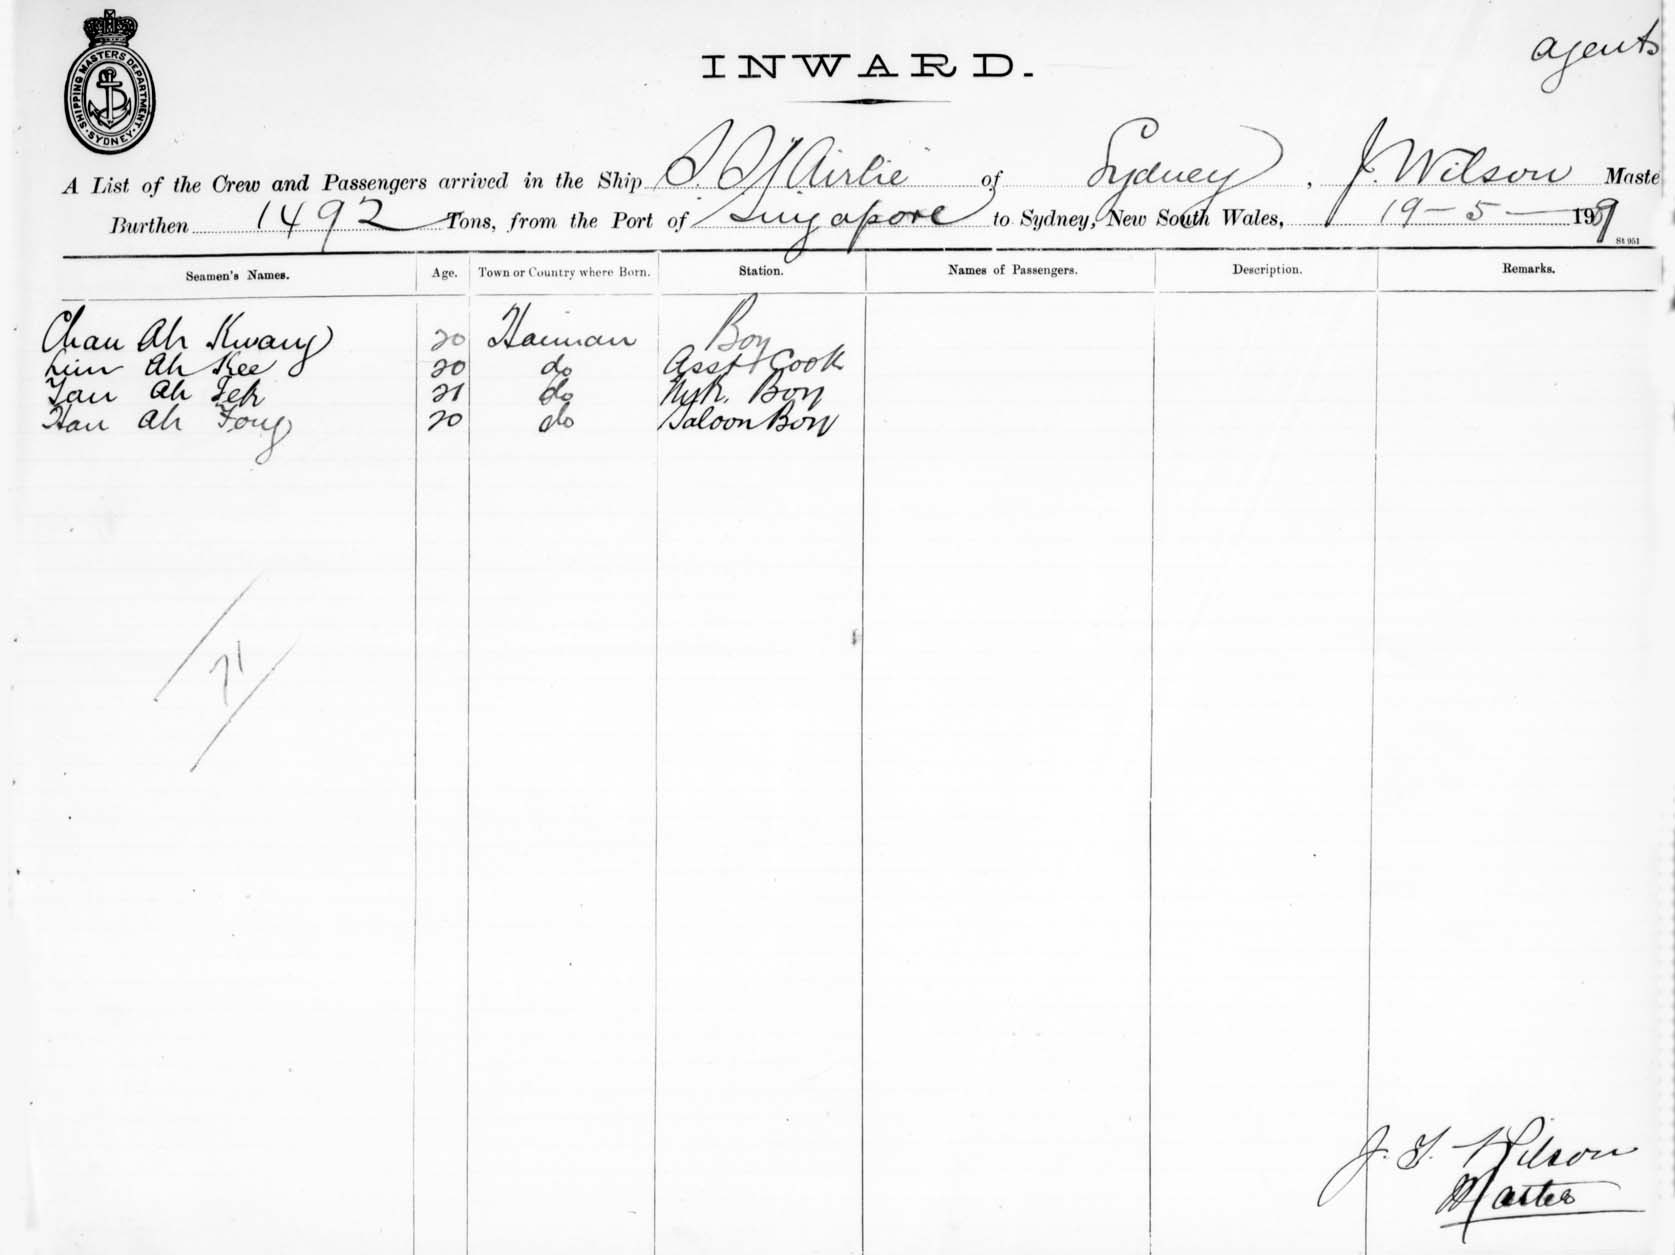 agents
SHIPPING MASTERS DEPARTMENT · SYDNEY ·
INWARD.
A List of the Crew and Passengers arrived in the Ship S. S. "Airlie" of Sydney, J. Wilson Maste
Burthen 1492 Tons, from the Port of Singapore to Sydney, New South Wales, 19-5-1909
St 951
Seamen's Names. Age. Town or Country where Born. Station. Names of Passengers. Description. Remarks.
Chan Ah Kwang 20 Hainan Boy
Lim Ah Kee 20 do Asst Cook
Tan Ah Tek 21 do Boy
Han Ah Fong 20 do Saloon Boy
71
J. Wilson
Master